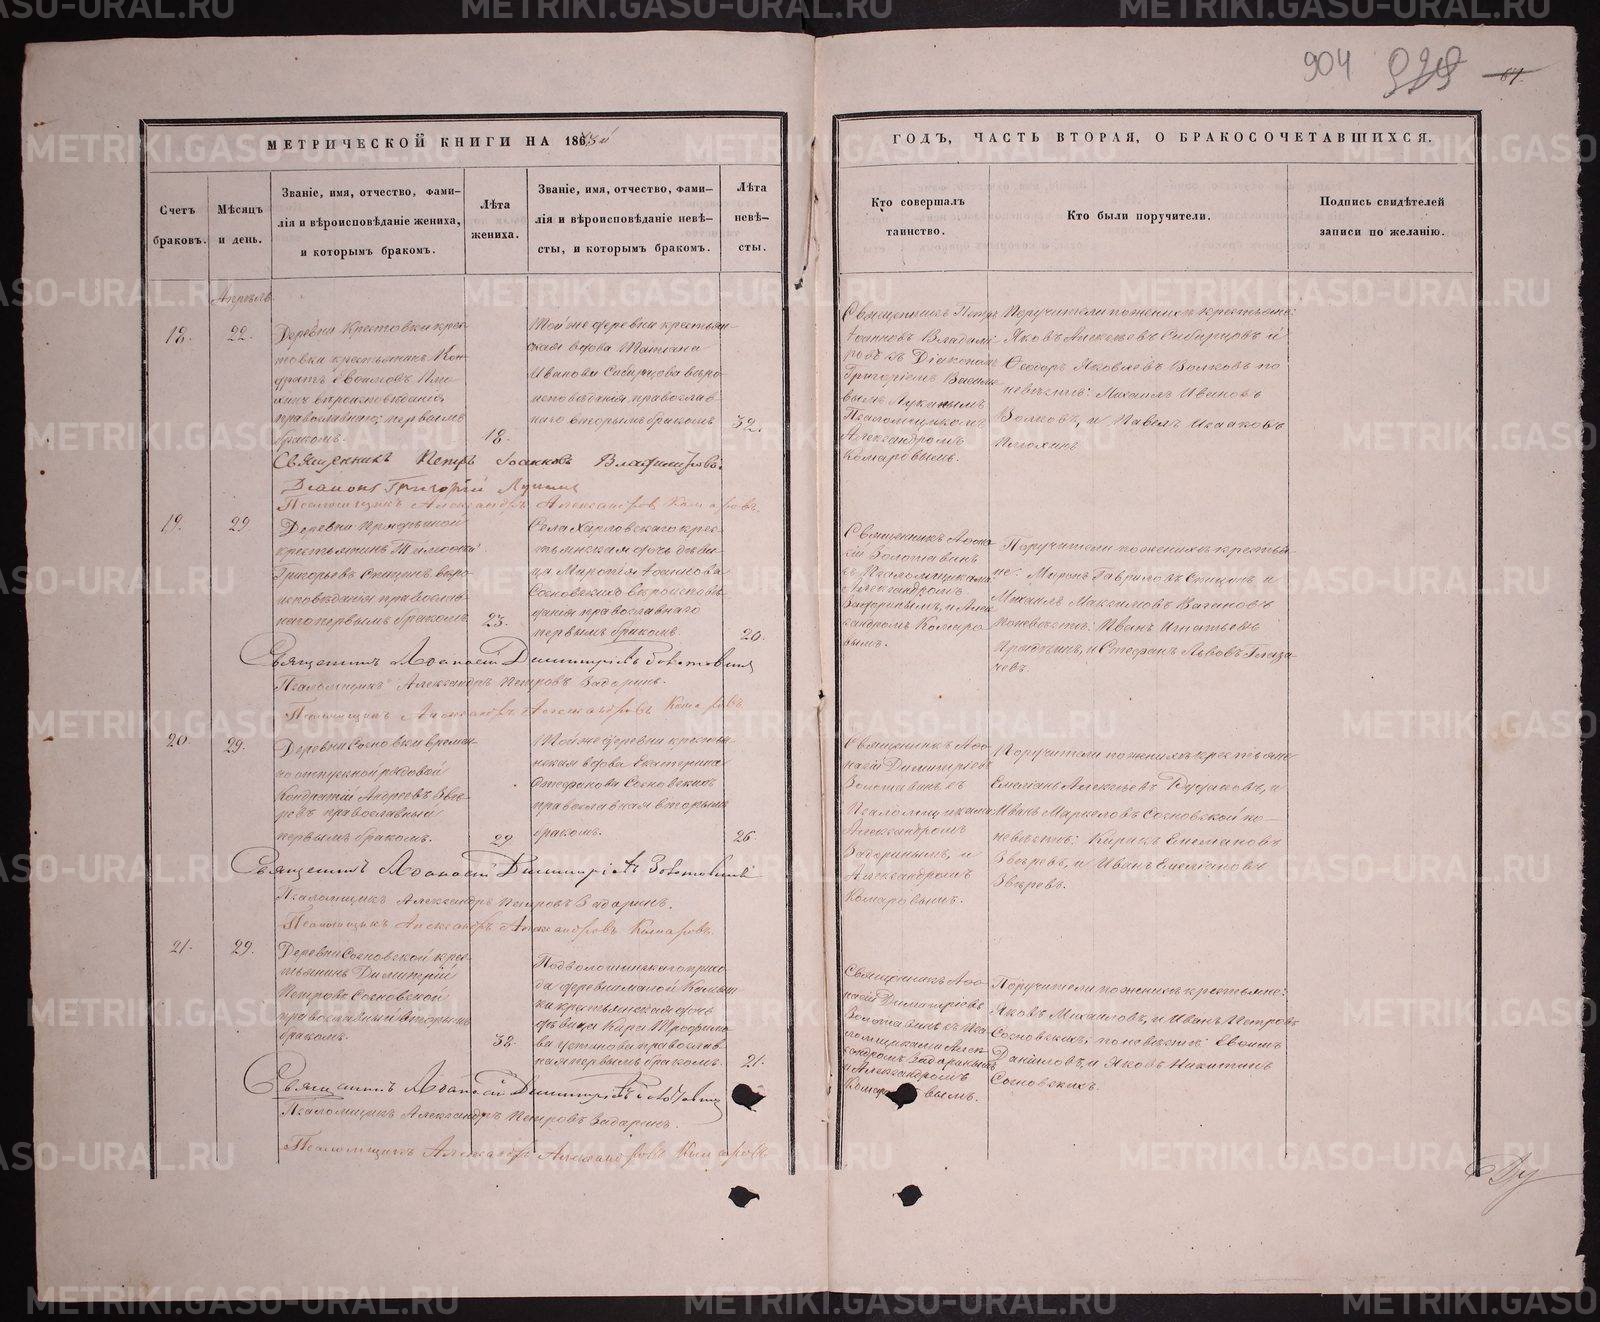 904
МЕТРИЧЕСКОЙ КНИГИ НА 1863й
ГОДЪ, ЧАСТЬ ВТОРАЯ, О БРАКОСОЧЕТАВШИХСЯ.
Счетъ браковъ.
Мѣсяцъ и день.
Званіе, имя, отчество, фами-
лія и вѣроисповѣданіе жениха,
и которымъ бракомъ.
Лѣта
жениха.
Званіе, имя, отчество, фами-
лія и вѣроисповѣданіе невѣ-
сты, и которымъ бракомъ.
Лѣта
невѣ-
сты.
Кто совершалъ
таинство.
Кто были поручители.
Подпись свидѣтелей
записи по желанію.
Апрѣль
18.
22.
Деревни Крестовки крес-
православнаго, первымъ
бракомъ.
18.
Той же деревни крестьян-
ская вдова Татіана
Иванова Сибирцова вѣро-
исповѣданія православ-
наго вторымъ бракомъ
32.
Священникъ Петръ
Іоанновъ Владими-
ровъ съ Діакономъ
Григоріемъ Василье-
вымъ
Псаломщикомъ
Александромъ
Комаровымъ.
Поручители по женихѣ крестьяне
Яковъ Алексѣевъ Сибирцовъ и
Ѳеодоръ Яковлевъ Волковъ по
невѣстѣ: Михаилъ Ивановъ
Волковъ, и Павелъ Исааковъ
Плюхинъ
Священникъ Петръ Іоанновъ Владимировъ
Діаконъ Григорій
Псаломщикъ Александръ Александровъ Комаровъ.
19.
29
Деревни
крестьянинъ Тимоѳей
Григорьевъ Спицинъ вѣро-
исповѣданія православ-
наго первымъ бракомъ
23.
Села Харловскаго крес-
тьянская дочь дѣви-
ца Іоаннова
Сосновскихъ вѣроисповѣ-
данія православнаго
первымъ бракомъ.
20.
Священникъ Аѳана-
сій Золотавинъ
съ Псаломщиками
Александромъ
Задоринымъ, и Алек-
сандромъ Комаро-
вымъ.
Поручители по женихѣ крестья-
не: Миронъ Гавриловъ Спицинъ и
Михаилъ Максимовъ Вагановъ
по невѣстѣ: Иванъ Игнатьевъ
и Стефанъ Львовъ Глаза-
чевъ.
Священникъ Аѳанасій Димитріевъ Золотавинъ
Псаломщикъ Александръ Петровъ Задоринъ.
Псаломщикъ Александръ Александровъ Комаровъ
20.
29.
Деревни Сосновки времен-
но отпускной рядовой
Кондратій Андреевъ Звѣ-
ревъ православный
первымъ бракомъ.
29
Той же деревни крестья-
нская вдова Екатерина
Стефанова Сосновскихъ
православная вторымъ
бракомъ.
26.
Священникъ Аѳа-
насій Димитріевъ
Золотавинъ съ
Псаломщиками
Александромъ
Задоринымъ, и
Александромъ
Комаровымъ.
Поручители по женихѣ крестьяне
Емеліанъ Алексѣевъ, и
Иванъ Маркеловъ Сосновской по
невѣстѣ: Кирилъ Емеліановъ
Звѣревъ, и Иванъ Емеліановъ
Звѣревъ.
Священникъ Аѳанасій Димитріевъ Золотавинъ
Псаломщикъ Александръ Петровъ Задоринъ.
Псаломщикъ Александръ Александровъ Комаровъ.
21.
29.
Деревни Сосновской крес-
тьянинъ Димитрій
Петровъ Сосновской
православный вторымъ
бракомъ.
32.
Подволошинскаго прихо-
да деревни малой
крестьянская дочь
дѣвица Кира Трофимо-
ва Устинова православ-
ная первымъ бракомъ.
21.
Священникъ Аѳа-
насій Димитріевъ
Золотавинъ съ Пса-
ломщиками Алек-
сандромъ Задоринымъ
и Александромъ
Комаровымъ.
Поручители по женихѣ крестьяне:
Яковъ Михаиловъ, и Иванъ Петровъ
Сосновскихъ, по невѣстѣ: Евѳимъ
Даниловъ, и Яковъ Никитинъ
Сосновскихъ.
Священникъ Аѳанасій Димитріевъ Золотавинъ
Псаломщикъ Александръ Петровъ Задоринъ.
Псаломщикъ Александръ Александровъ Комаровъ
METRIKI.GASO-URAL.RU